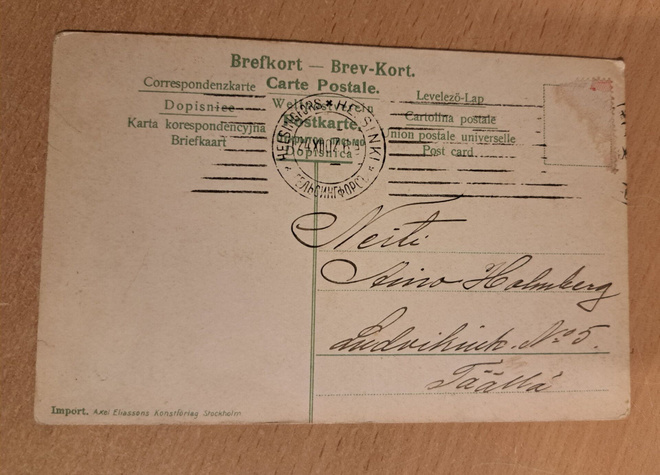 Brefkort — Brev-Kort.
Correspondenzkarte Carte Postale. Levelező-Lap
Dopisnice Cartolina postale
Karta korespondencyjna Postkarte. Union postale universelle
Briefkaart Dopisnica Post card
HELSINGFORS * HELSINKI
ГЕЛЬСИНГФОРСЪ
Neiti
Aino Holmberg
Ludvikink. No 5.
Täällä
Import. Axel Eliassons Konstförlag Stockholm